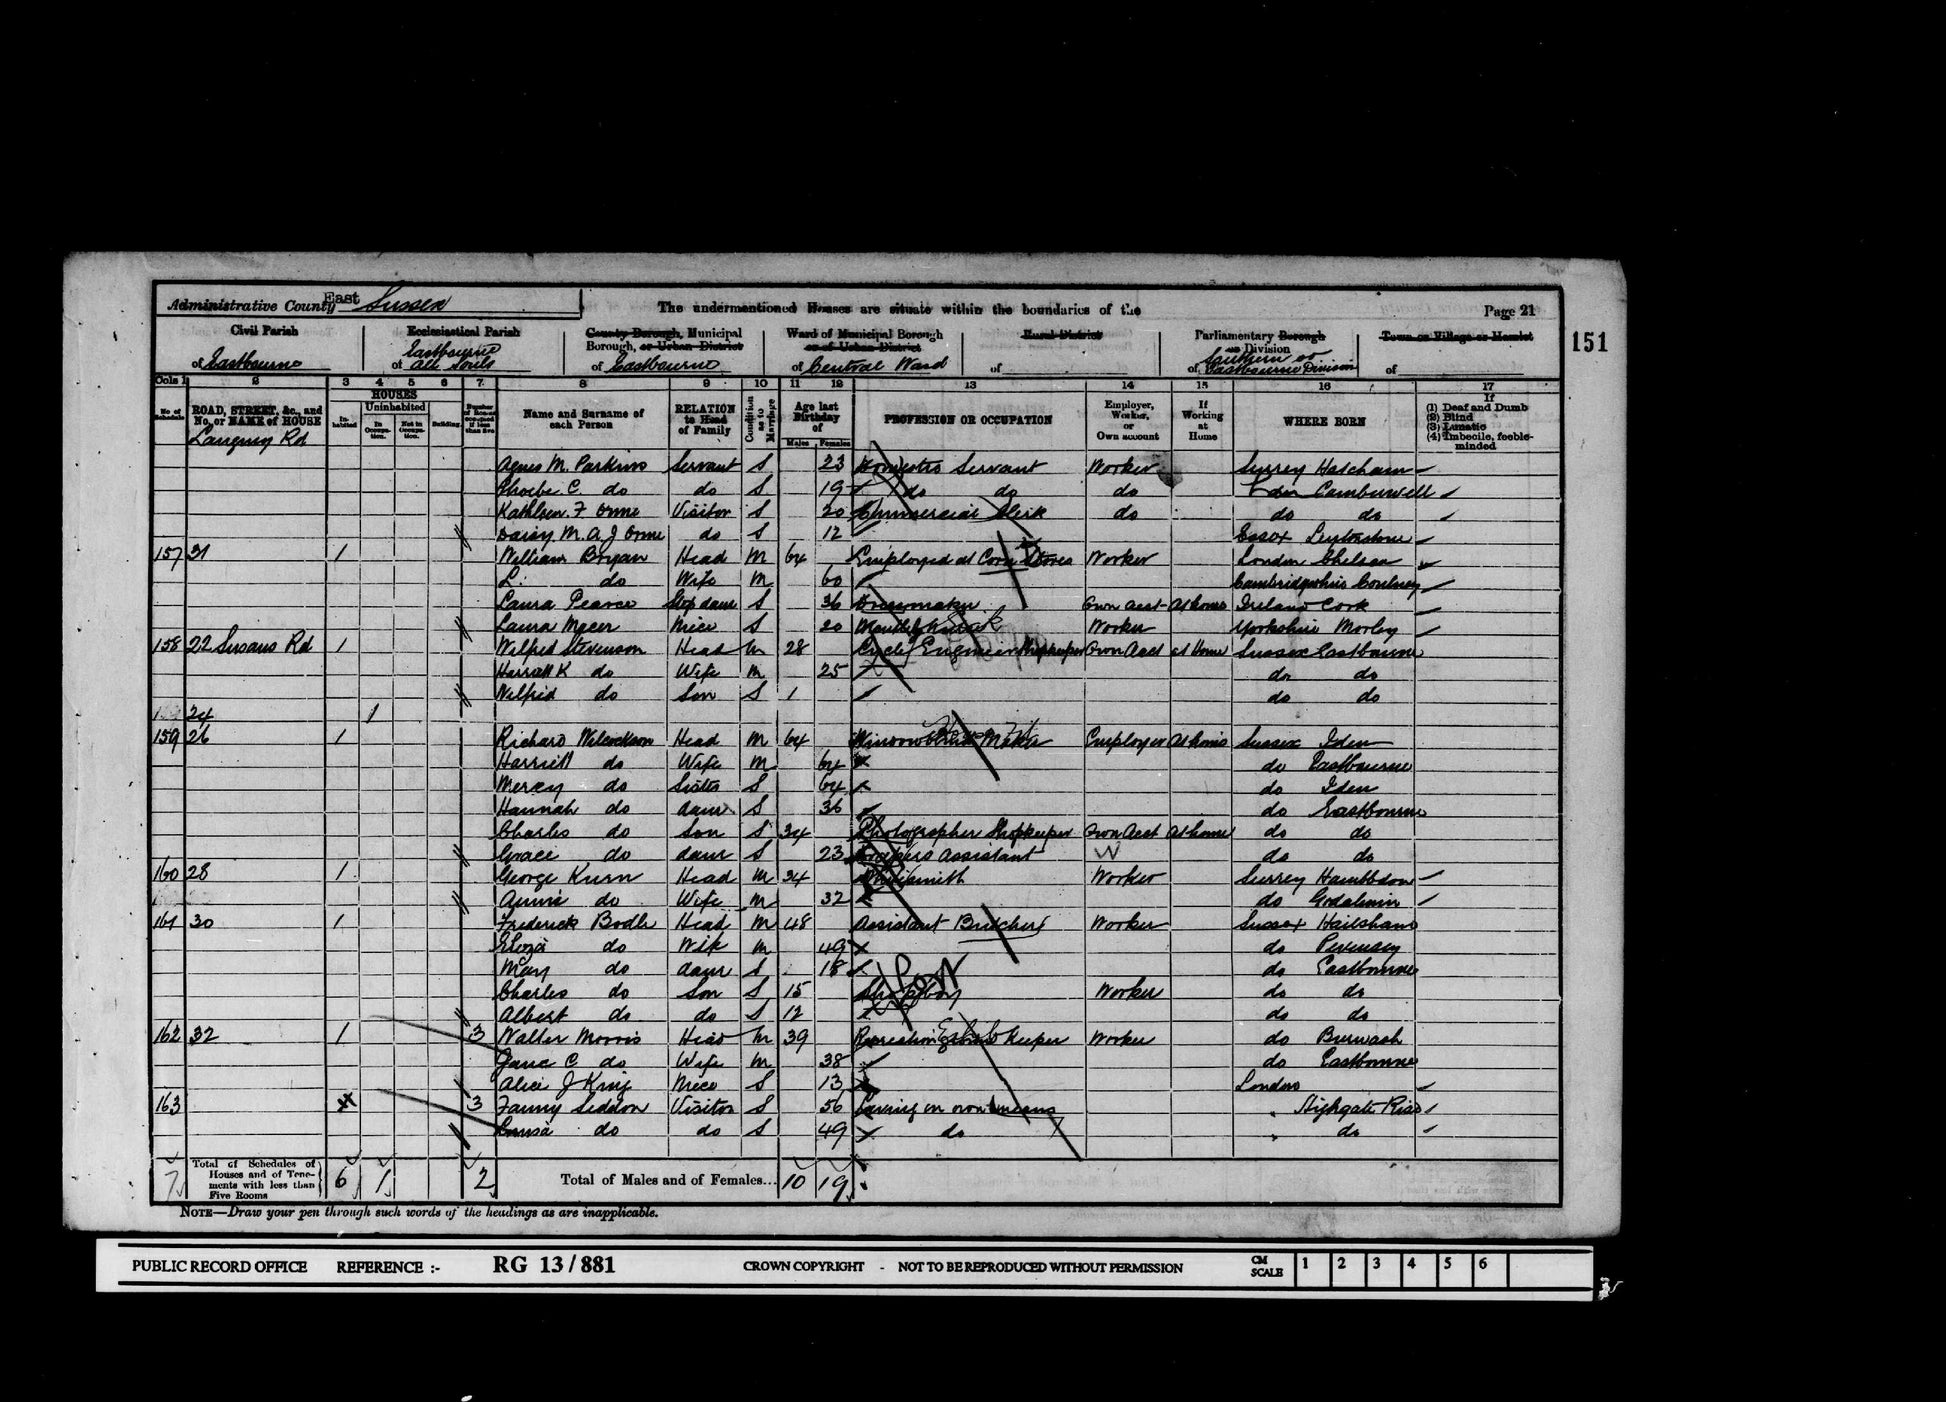 Administrative County East Sussex The undermentioned Houses are situate within the boundaries of the Page 21
151
Civil Parish Ecclesiastical Parish County Borough, Municipal Borough, or Urban District Ward of Municipal Borough or of Urban District Rural District Parliamentary Borough or Division Town or Village or Hamlet
of Eastbourne of Eastbourne All Souls of Eastbourne of Central Ward of of Southern or Eastbourne Division of
Cols 1 2 3 4 5 6 7 8 9 10 11 12 13 14 15 16 17
No. of Schedule ROAD, STREET, &c., and No. or NAME of HOUSE HOUSES Inhabited Uninhabited In Occupation. Not in Occupation. Building. Number of Rooms occupied if less than five Name and Surname of each Person RELATION to Head of Family Condition as to Marriage Age last Birthday of Males Females PROFESSION OR OCCUPATION Employer, Worker, or Own account If Working at Home WHERE BORN If (1) Deaf and Dumb (2) Blind (3) Lunatic (4) Imbecile, feeble-minded
Langney Rd
Agnes M. Parkins Servant S 23 Domestic Servant Worker Surrey Hatcham
Phoebe C. do do S 19 do do do Camberwell
Kathleen F Orme Visitor S 20 Commercial Clerk do do do
Daisy M. A. J Orme do S 12 Essex Leytonstone
157 31 1 William Bryan Head M 64 Employed at Corn Stores Worker London Chelsea
L. do Wife M 60 Cambridgeshire
Laura Pearce Step daur S 36 Dressmaker Own acct At home Ireland Cork
Laura Mecer Niece S 20 Worker Yorkshire Morley
158 22 Susans Rd 1 Wilfred Stevenson Head M 28 Cycle Engineer Shopkeeper Own Acct at Home Sussex Eastbourne
K do Wife M 25 do do
Wilfrid do Son S 1 do do
24 1
159 26 1 Richard Wilcockson Head M 64 Window Blind Maker Employer At home Sussex Iden
Harriett do Wife M 64 do Eastbourne
Mercy do Sister S 64 do Iden
Hannah do daur S 36 do Eastbourne
Charles do Son S 34 Photographer Shopkeeper Own Acct At home do do
Grace do daur S 23 Drapers Assistant W do do
160 28 1 George Kurn Head M 34 Whitesmith Worker Surrey Hambledon
Annie do Wife M 32 do Godalmin
161 30 1 Frederick Bodle Head M 48 Assistant Butcher Worker Sussex Hailsham
Eliza do Wife M 49 do Pevensey
May do daur S 18 do Eastbourne
Charles do Son S 15 Shop boy Worker do do
Albert do do S 12 do do
162 32 1 3 Walter Morris Head M 39 Recreation Ground Keeper Worker do Burwash
Jane C do Wife M 38 do Eastbourne
Alice J King Niece S 13 London
163 3 Fanny Seddon Visitor S 56 Living on own means " Highgate Rise
Louisa do do S 49 do " do
7 Total of Schedules of Houses and of Tenements with less than Five Rooms 6 1 2 Total of Males and of Females... 10 19
NOTE—Draw your pen through such words of the headings as are inapplicable.
PUBLIC RECORD OFFICE REFERENCE :- RG 13 / 881 CROWN COPYRIGHT - NOT TO BE REPRODUCED WITHOUT PERMISSION CM SCALE 1 2 3 4 5 6